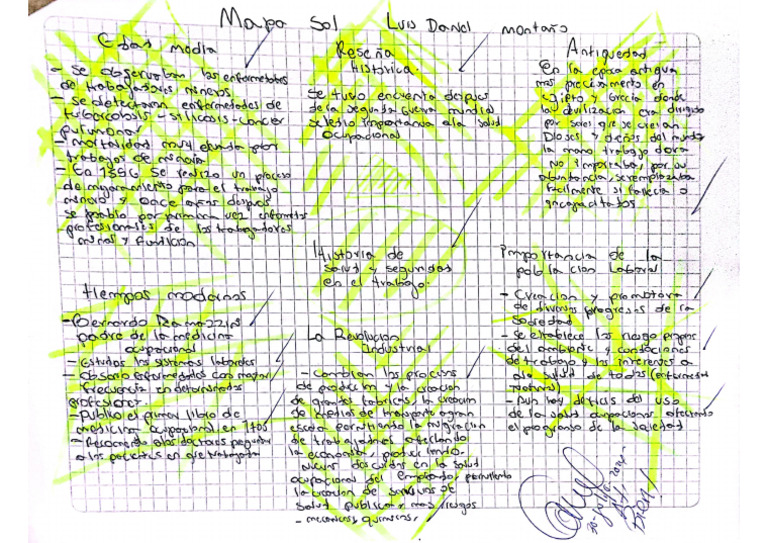 Mapa Sol Luis Daniel montaño
Edad media
- Se observaron las enfermedades
de trabajadores mineros
- Se detectaron enfermedades de
tuberculosis - silicosis - cancer
pulmonar
- mortalidad muy elevada por
trabajos de mineria
- En 1556 Se realizo un proceso
de mejoramiento para el trabajo
minero y once años despues
se publico por primera vez enfermed
profesionales de los trabajadores
minas y fundicion
Reseña
Historica.
Se tuvo encuenta despues
de la segunda guerra mundial
se le dio importancia a la salud
ocupacional
Antiguedad
En la epoca antigua
mas precisamente en
Egipto y Grecia donde
la civilizacion era dirigida
por seres que se creian
Dioses y dueños del mundo
la mano trabajo dora
No importaba, por su
abundancia, se remplazaba
facilmente si fallecia o
incapacitados
Historia de
Salud y seguridad
en el trabajo.
tiempos modernos
- Bernardo Ramazzini
padre de la medicina
ocupacional
- Estudios los sistemas laborales
- Observo enfermedades con mayor
frecuencia en determinadas
profesiones
- Publico el primer libro de
medicina ocupacional en 1705
- Recomendo a los doctores preguntar
a los pacientes en que trabajaban
La Revolucion
Industrial
- Cambian los procesos
de produccion y la creacion
de grandes fabricas, la creacion
de medios de transporte a gran
escala permitiendo la migracion
de trabajadores afectando
la economia, produciendo
nuevas en la salud
ocupacional del empleado, permitiendo
la creacion de servicios de
salud publica y mas riesgos
- mecanicos, quimicos,
Importancia de la
poblacion Laboral
- Creacion y promotora
de diversos progresos de la
Sociedad
- Se establece los riesgo propios
del ambiente y condiciones
de trabajo y los intereses a
la salud de todos (enfermedad
- Aun hay deficis del uso
de la salud ocupacional afectando
el programa de la sociedad
30-julio-2014
Bien!